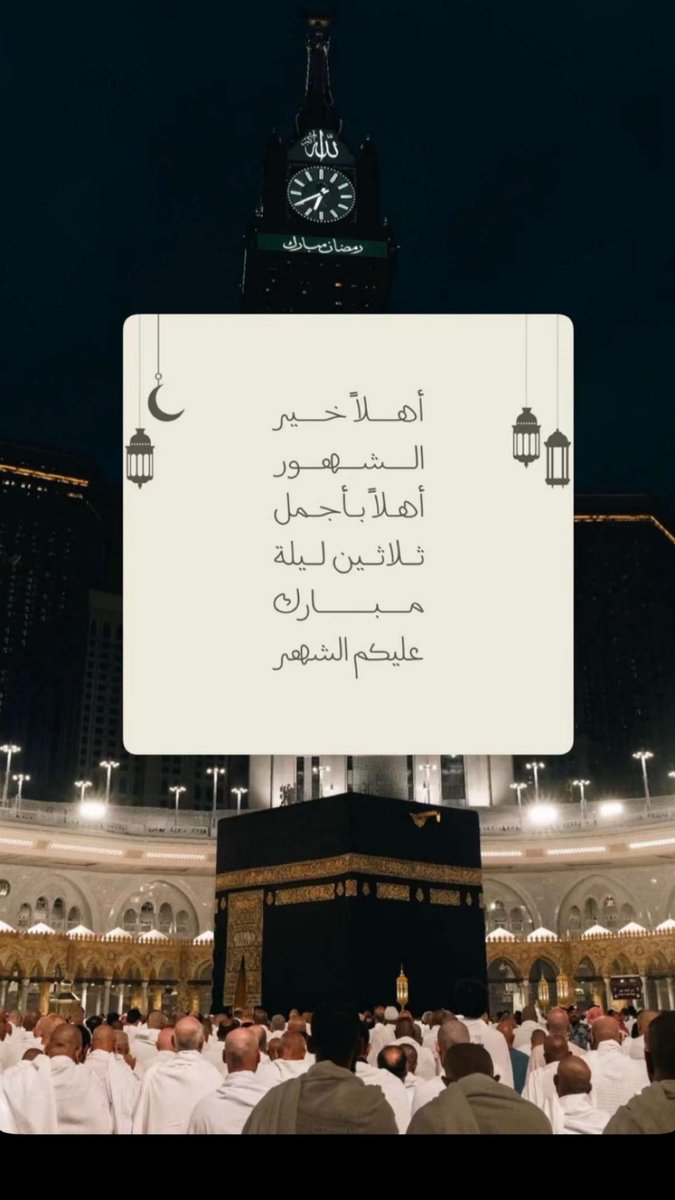 الله
رمضان مبارك
أهلاً خير
الشهور
أهلاً بأجمل
ثلاثين ليلة
مبارك
عليكم الشهر